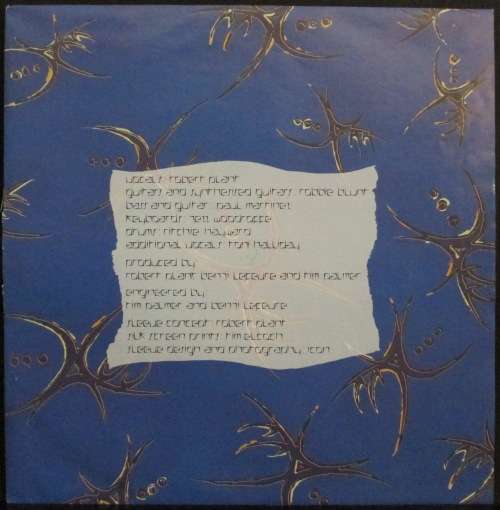 vocals: robert plant
guitars and synthesised guitars: robbie blunt
bass and guitar: paul martinez
keyboards: jezz woodroffe
drums: ritchie hayward
additional vocals: toni halliday
produced by
robert plant benji lefevre and tim palmer
engineered by
tim palmer and benji lefevre
sleeve concept: robert plant
silk screen prints: kim
sleeve design and photography: icon